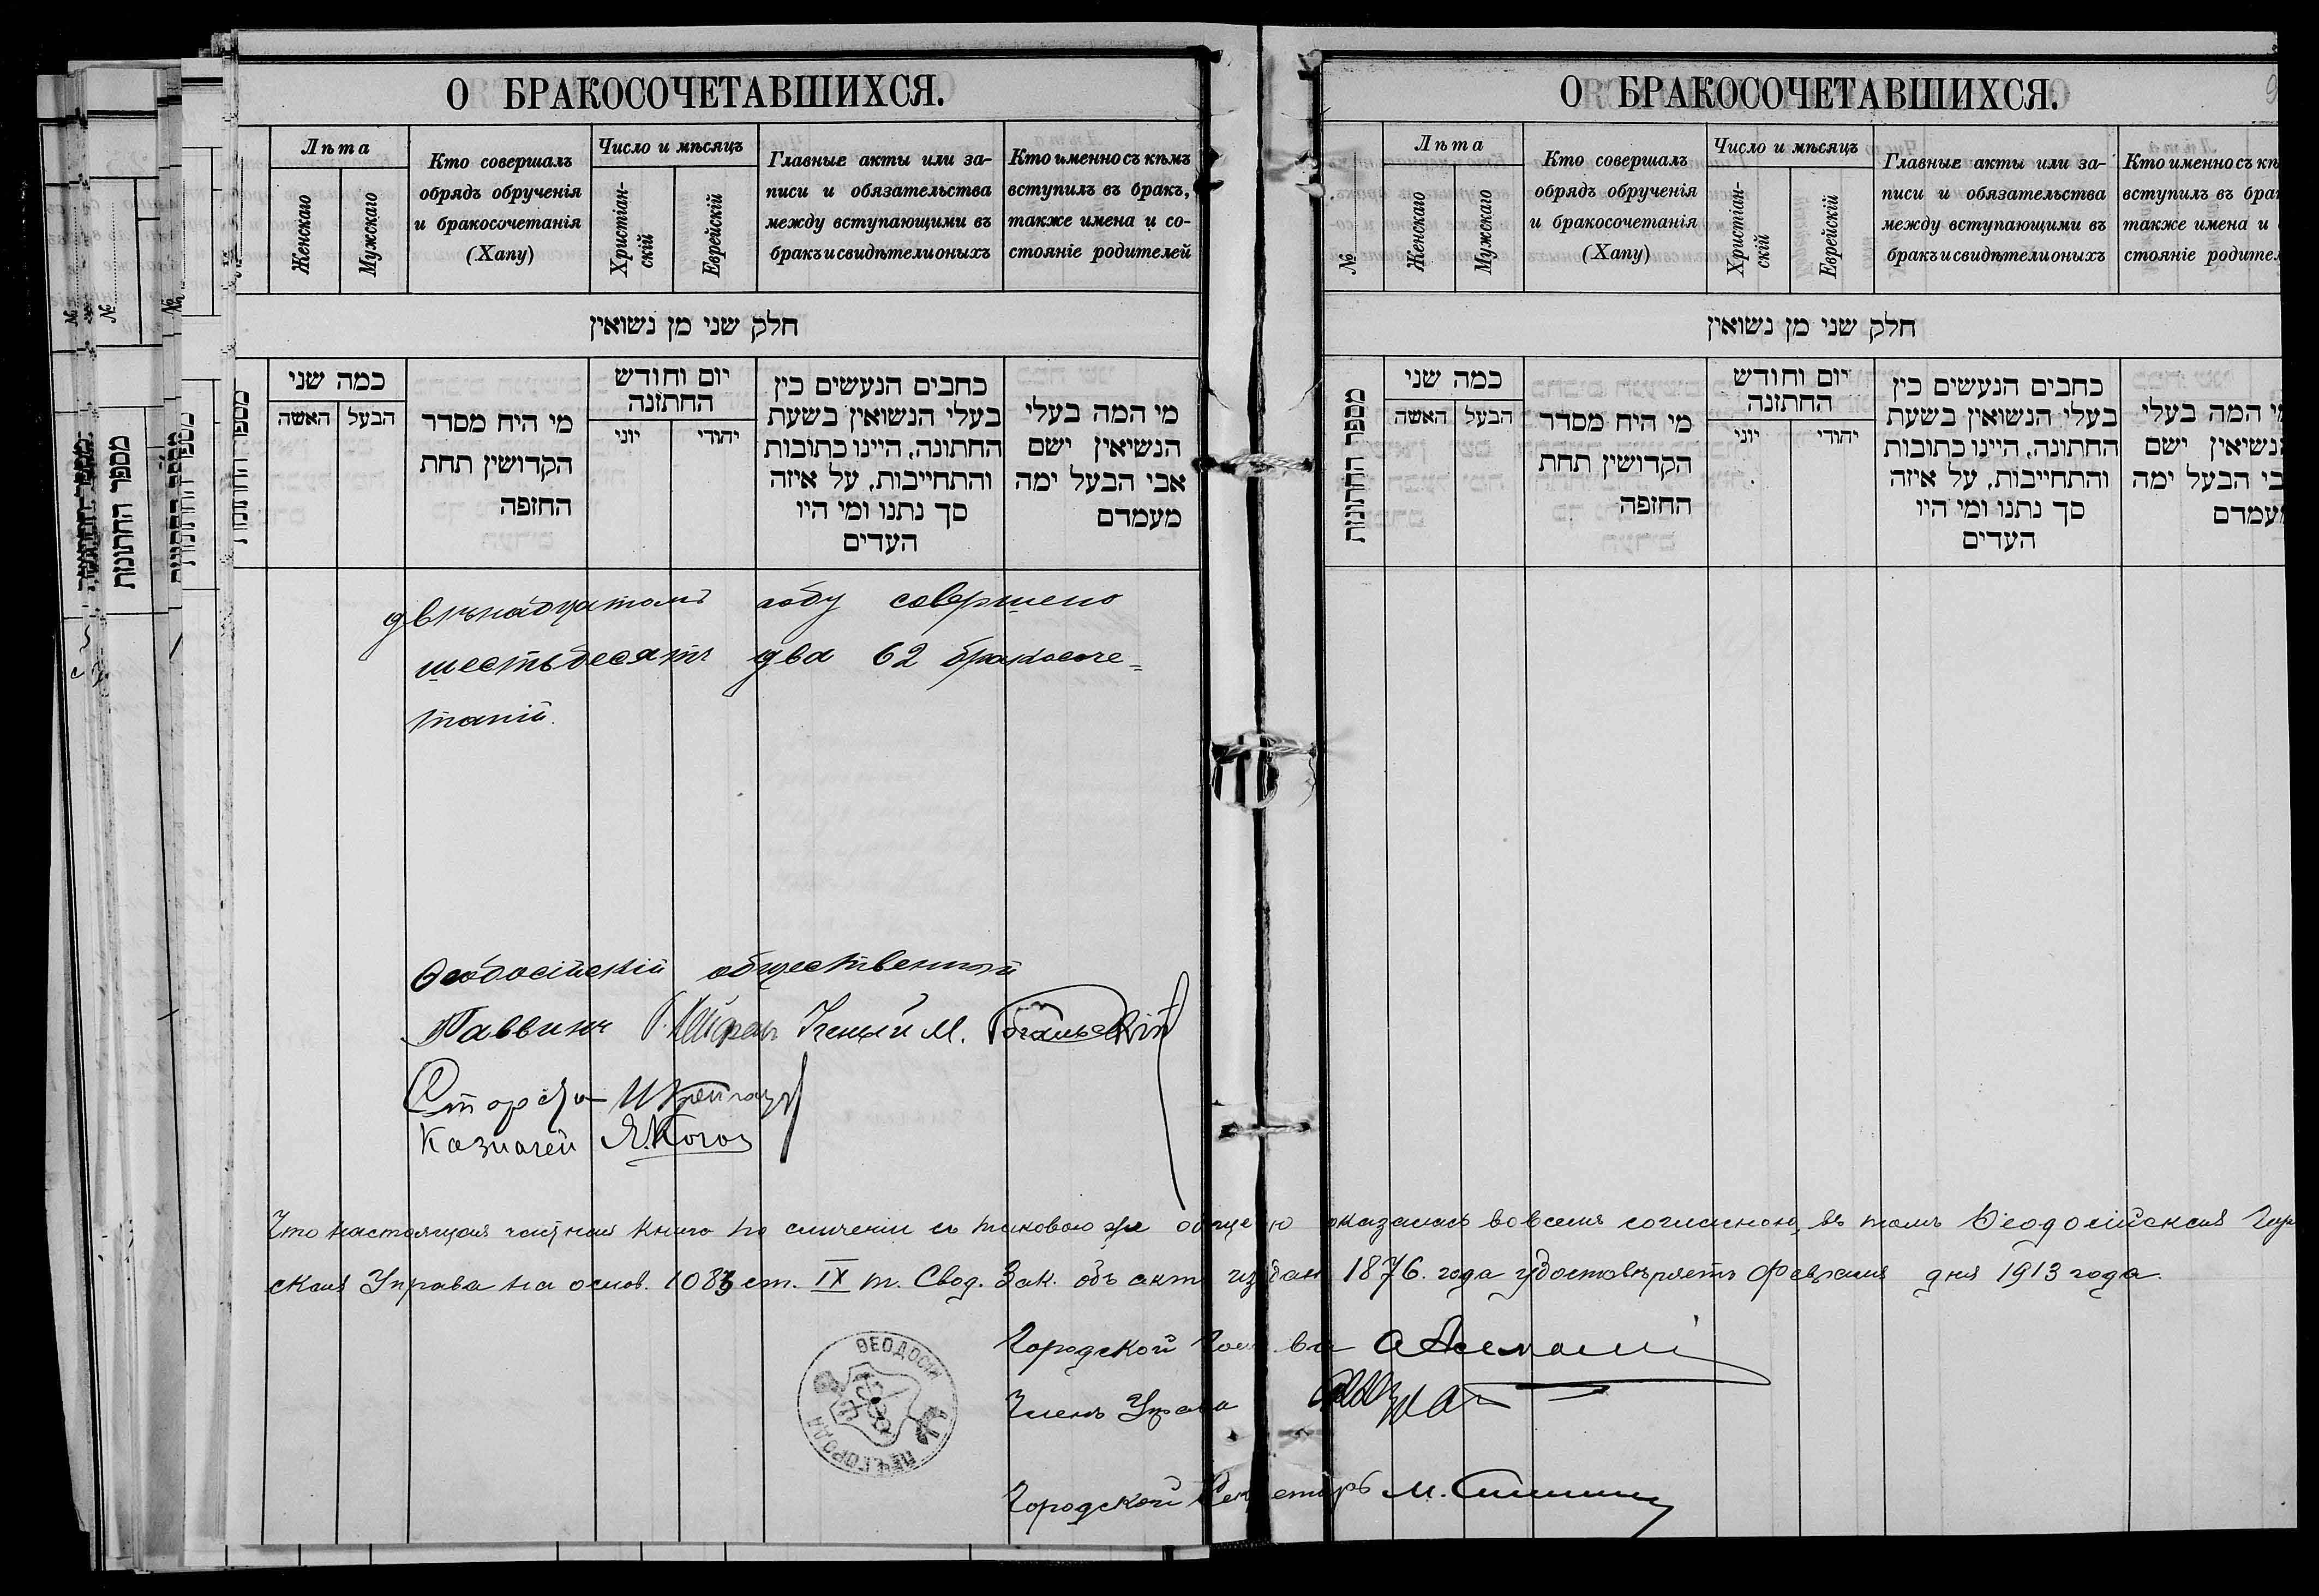 О БРАКОСОЧЕТАВШИХСЯ.
Лѣта
Женскаго
Мужскаго
Кто совершалъ
обрядъ обрученія
и бракосочетанія
(Хапу)
Число и мѣсяцъ
Христіан-
скій
Еврейскій
Главные акты или за-
писи и обязательства
между вступающими въ
бракъ и свидѣтели оныхъ
Кто именно съ кѣмъ
вступилъ въ бракъ,
также имена и со-
стояніе родителей
חלק שני מן נשואין
מספר החתונות
כמה שני
האשה
הבעל
מי היח מסדר
הקדושין תחת
החופה
יום וחודש
החתונה
יוני
יהודי
כחבים הנעשים כין
בעלי הנשואין בשעת
החתונה, היינו כתובות
והתחייבות, על איזה
סך נתנו ומי היו
העדים
מי המה בעלי
הנשיאין ישם
אבי הבעל ימה
מעמדם
двѣнадцатомъ году совершено
шестьдесятъ два 62 бракосоче=
таній.
Ѳеодосійскій общественный
Раввинъ Ученый М.
Староста
Казначей Я. Коген
Что настоящая частная книга по сличеніи съ таковою же общею оказалась во всемъ согласною, въ томъ Ѳеодосійская Гор
ская Управа на основ. 1083 ст. IX т. Свод. Зак. объ акт. издан 1876. года удостовѣряетъ Февраля дня 1913 года.
Городской Голова
Членъ Управы
Городской Секретарь М.
ѲЕОДОСІЙ
ГОРОД
О БРАКОСОЧЕТАВШИХСЯ.
№
Лѣта
Женскаго
Мужскаго
Кто совершалъ
обрядъ обрученія
и бракосочетанія
(Хапу)
Число и мѣсяцъ
Христіан-
скій
Еврейскій
Главные акты или за-
писи и обязательства
между вступающими въ
бракъ и свидѣтели оныхъ
Кто именно съ кѣ
вступилъ въ бра
также имена и
стояніе родител
חלק שני מן נשואין
מספר החתונות
כמה שני
האשה
הבעל
מי היח מסדר
הקדושין תחת
החופה
יום וחודש
החתונה
יוני
יהודי
כחבים הנעשים כין
בעלי הנשואין בשעת
החתונה, היינו כתובות
והתחייבות, על איזה
סך נתנו ומי היו
העדים
י המה בעלי
נשיאין ישם
בי הבעל ימה
מעמדם